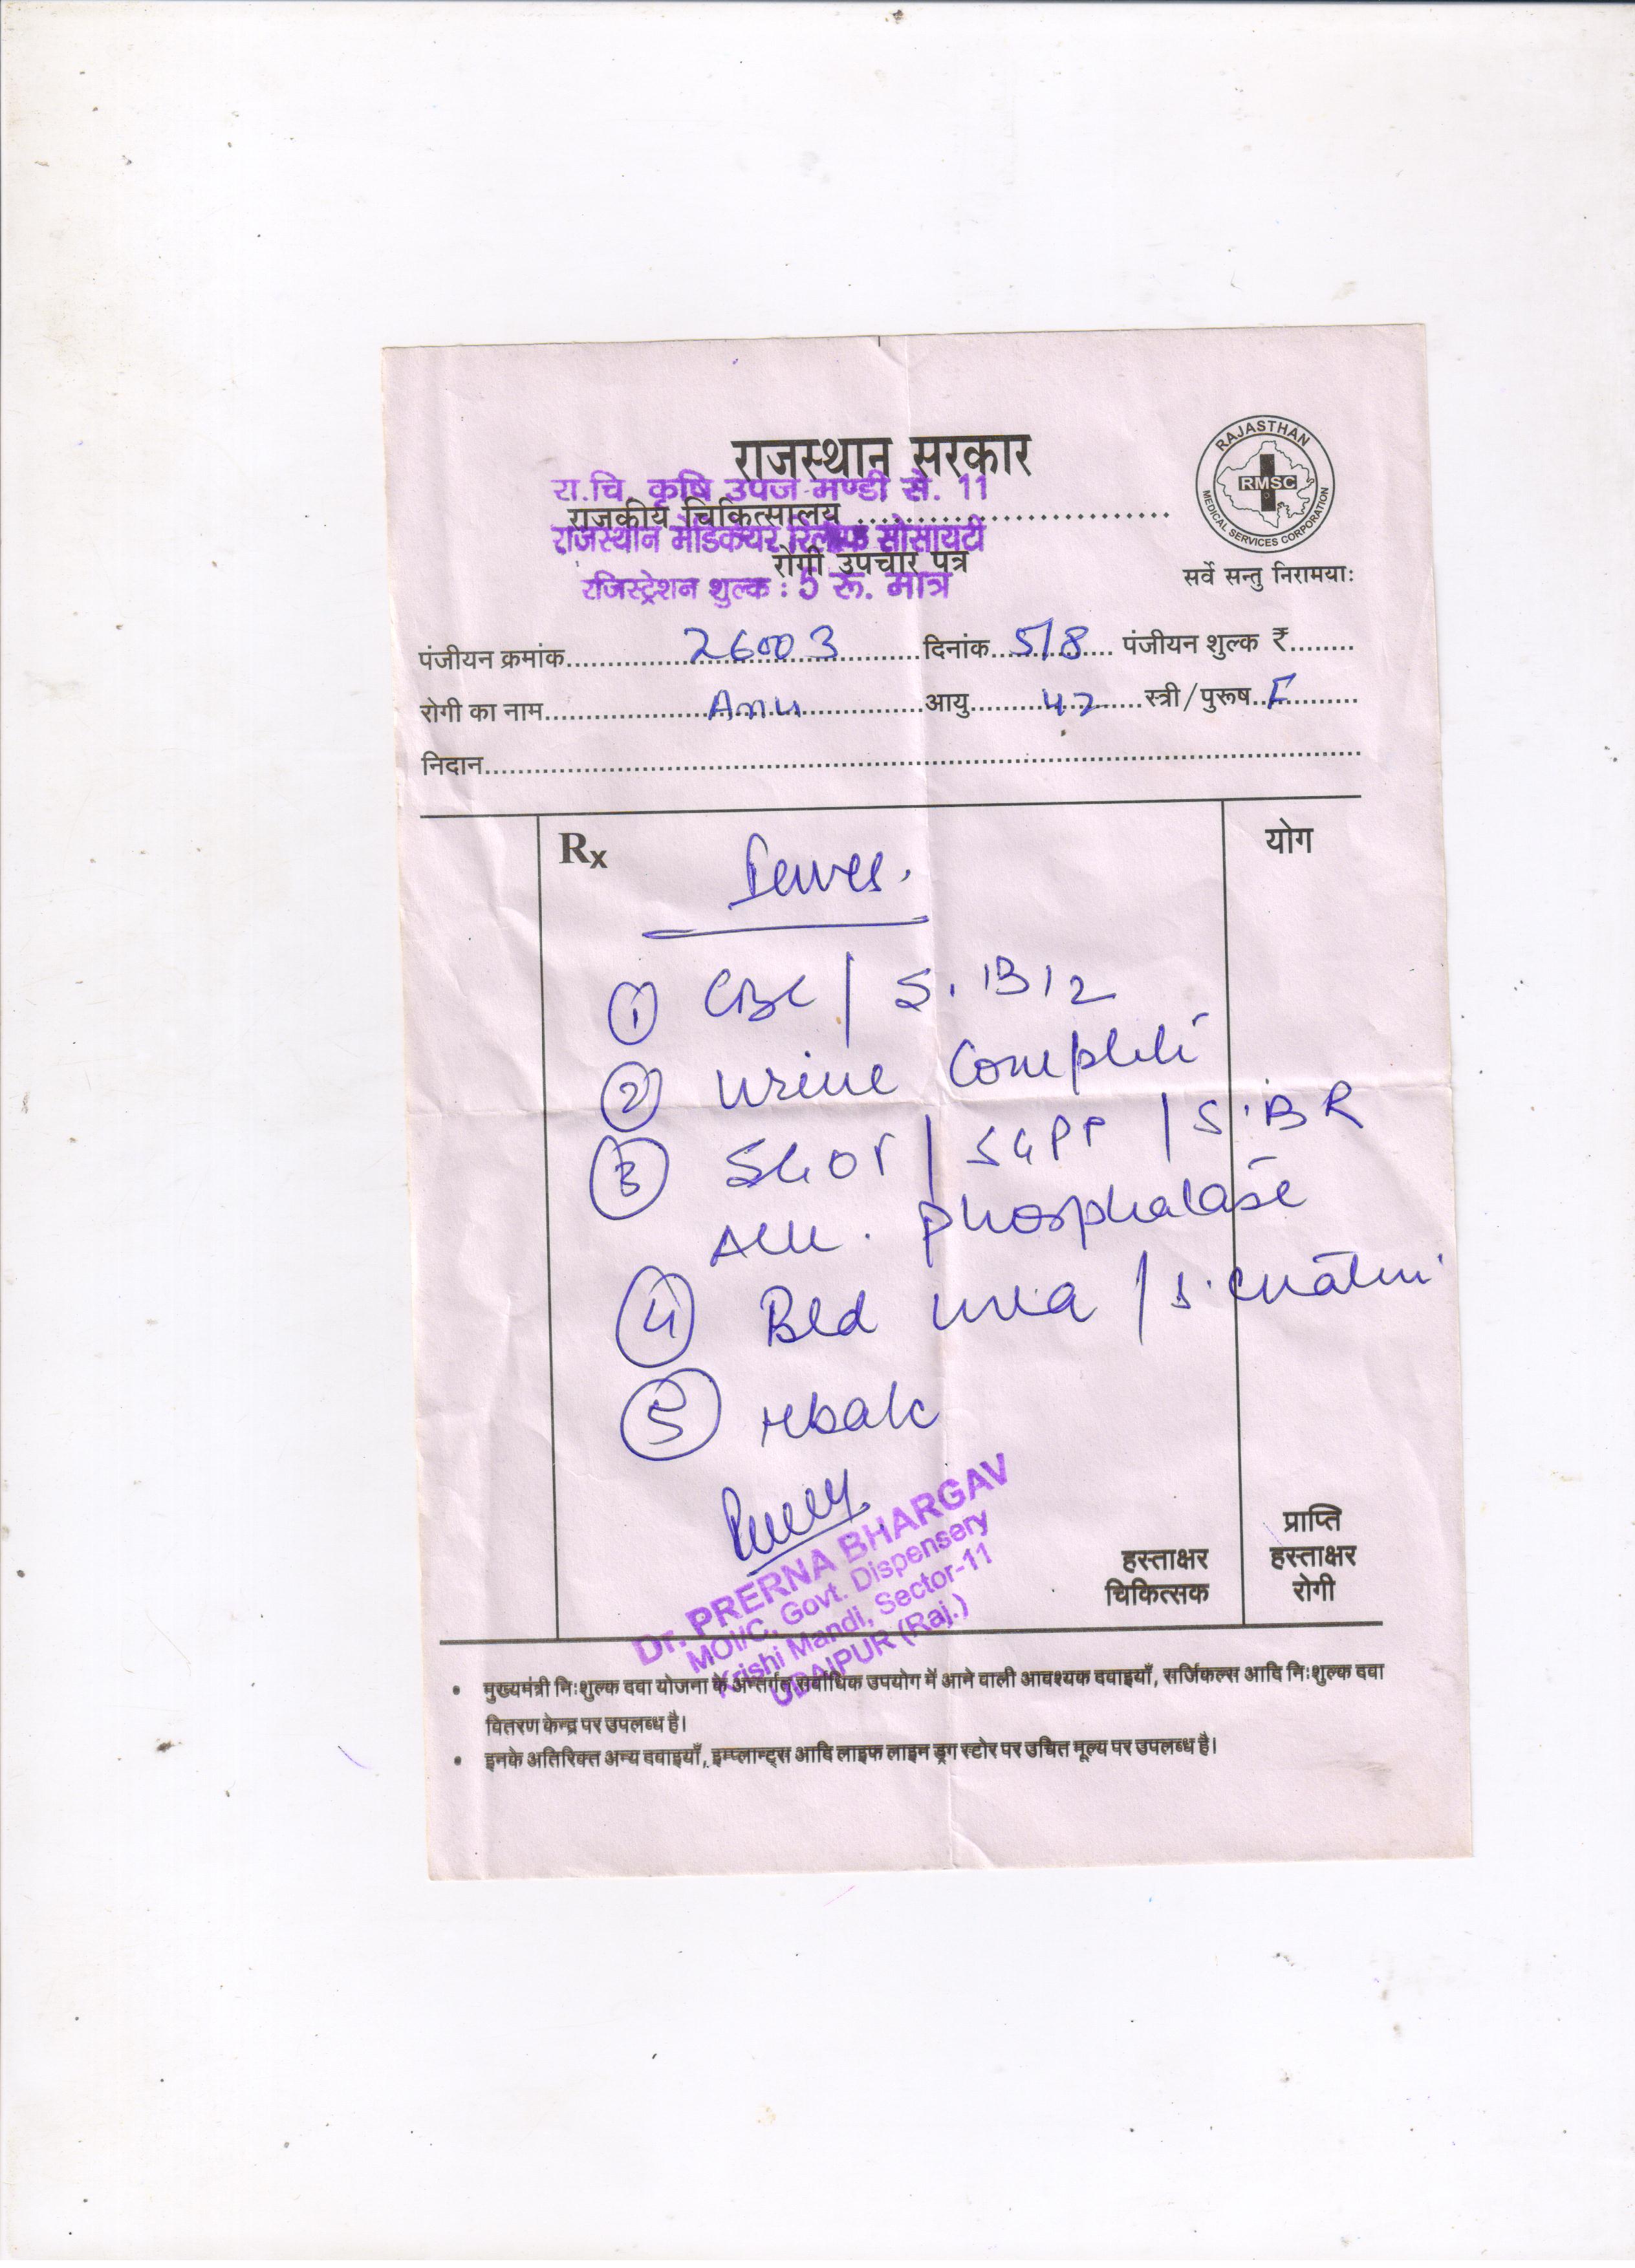 राजस्थान सरकार
रा.चि. कृषि उपज मण्डी से. 11
राजकीय चिकित्सालय ..............................
राजस्थान मेडिकेयर रिलीफ सोसायटी
रोगी उपचार पत्र
रजिस्ट्रेशन शुल्क : 5 रू. मात्र
RAJASTHAN
RMSC
MEDICAL SERVICES CORPORATION
सर्वे सन्तु निरामयाः
पंजीयन क्रमांक 26003 दिनांक 5/8 पंजीयन शुल्क ₹
रोगी का नाम Anu आयु 42 स्त्री/पुरूष F
निदान
Rx
योग
① CBC / S. B12
② Urine Complete
③ SGOT / SGPT / S. BR
Alk. phosphatase
④ Bld urea / S. creatini
⑤
Dr. PRERNA BHARGAV
MOI/C, Govt. Dispensery
Krishi Mandi, Sector-11
UDAIPUR (Raj.)
हस्ताक्षर
चिकित्सक
प्राप्ति
हस्ताक्षर
रोगी
• मुख्यमंत्री निःशुल्क दवा योजना के अन्तर्गत सर्वाधिक उपयोग में आने वाली आवश्यक दवाइयाँ, सर्जिकल्स आदि निःशुल्क दवा
वितरण केन्द्र पर उपलब्ध है।
• इनके अतिरिक्त अन्य दवाइयाँ, इम्प्लान्ट्स आदि लाइफ लाइन ड्रग स्टोर पर उचित मूल्य पर उपलब्ध है।